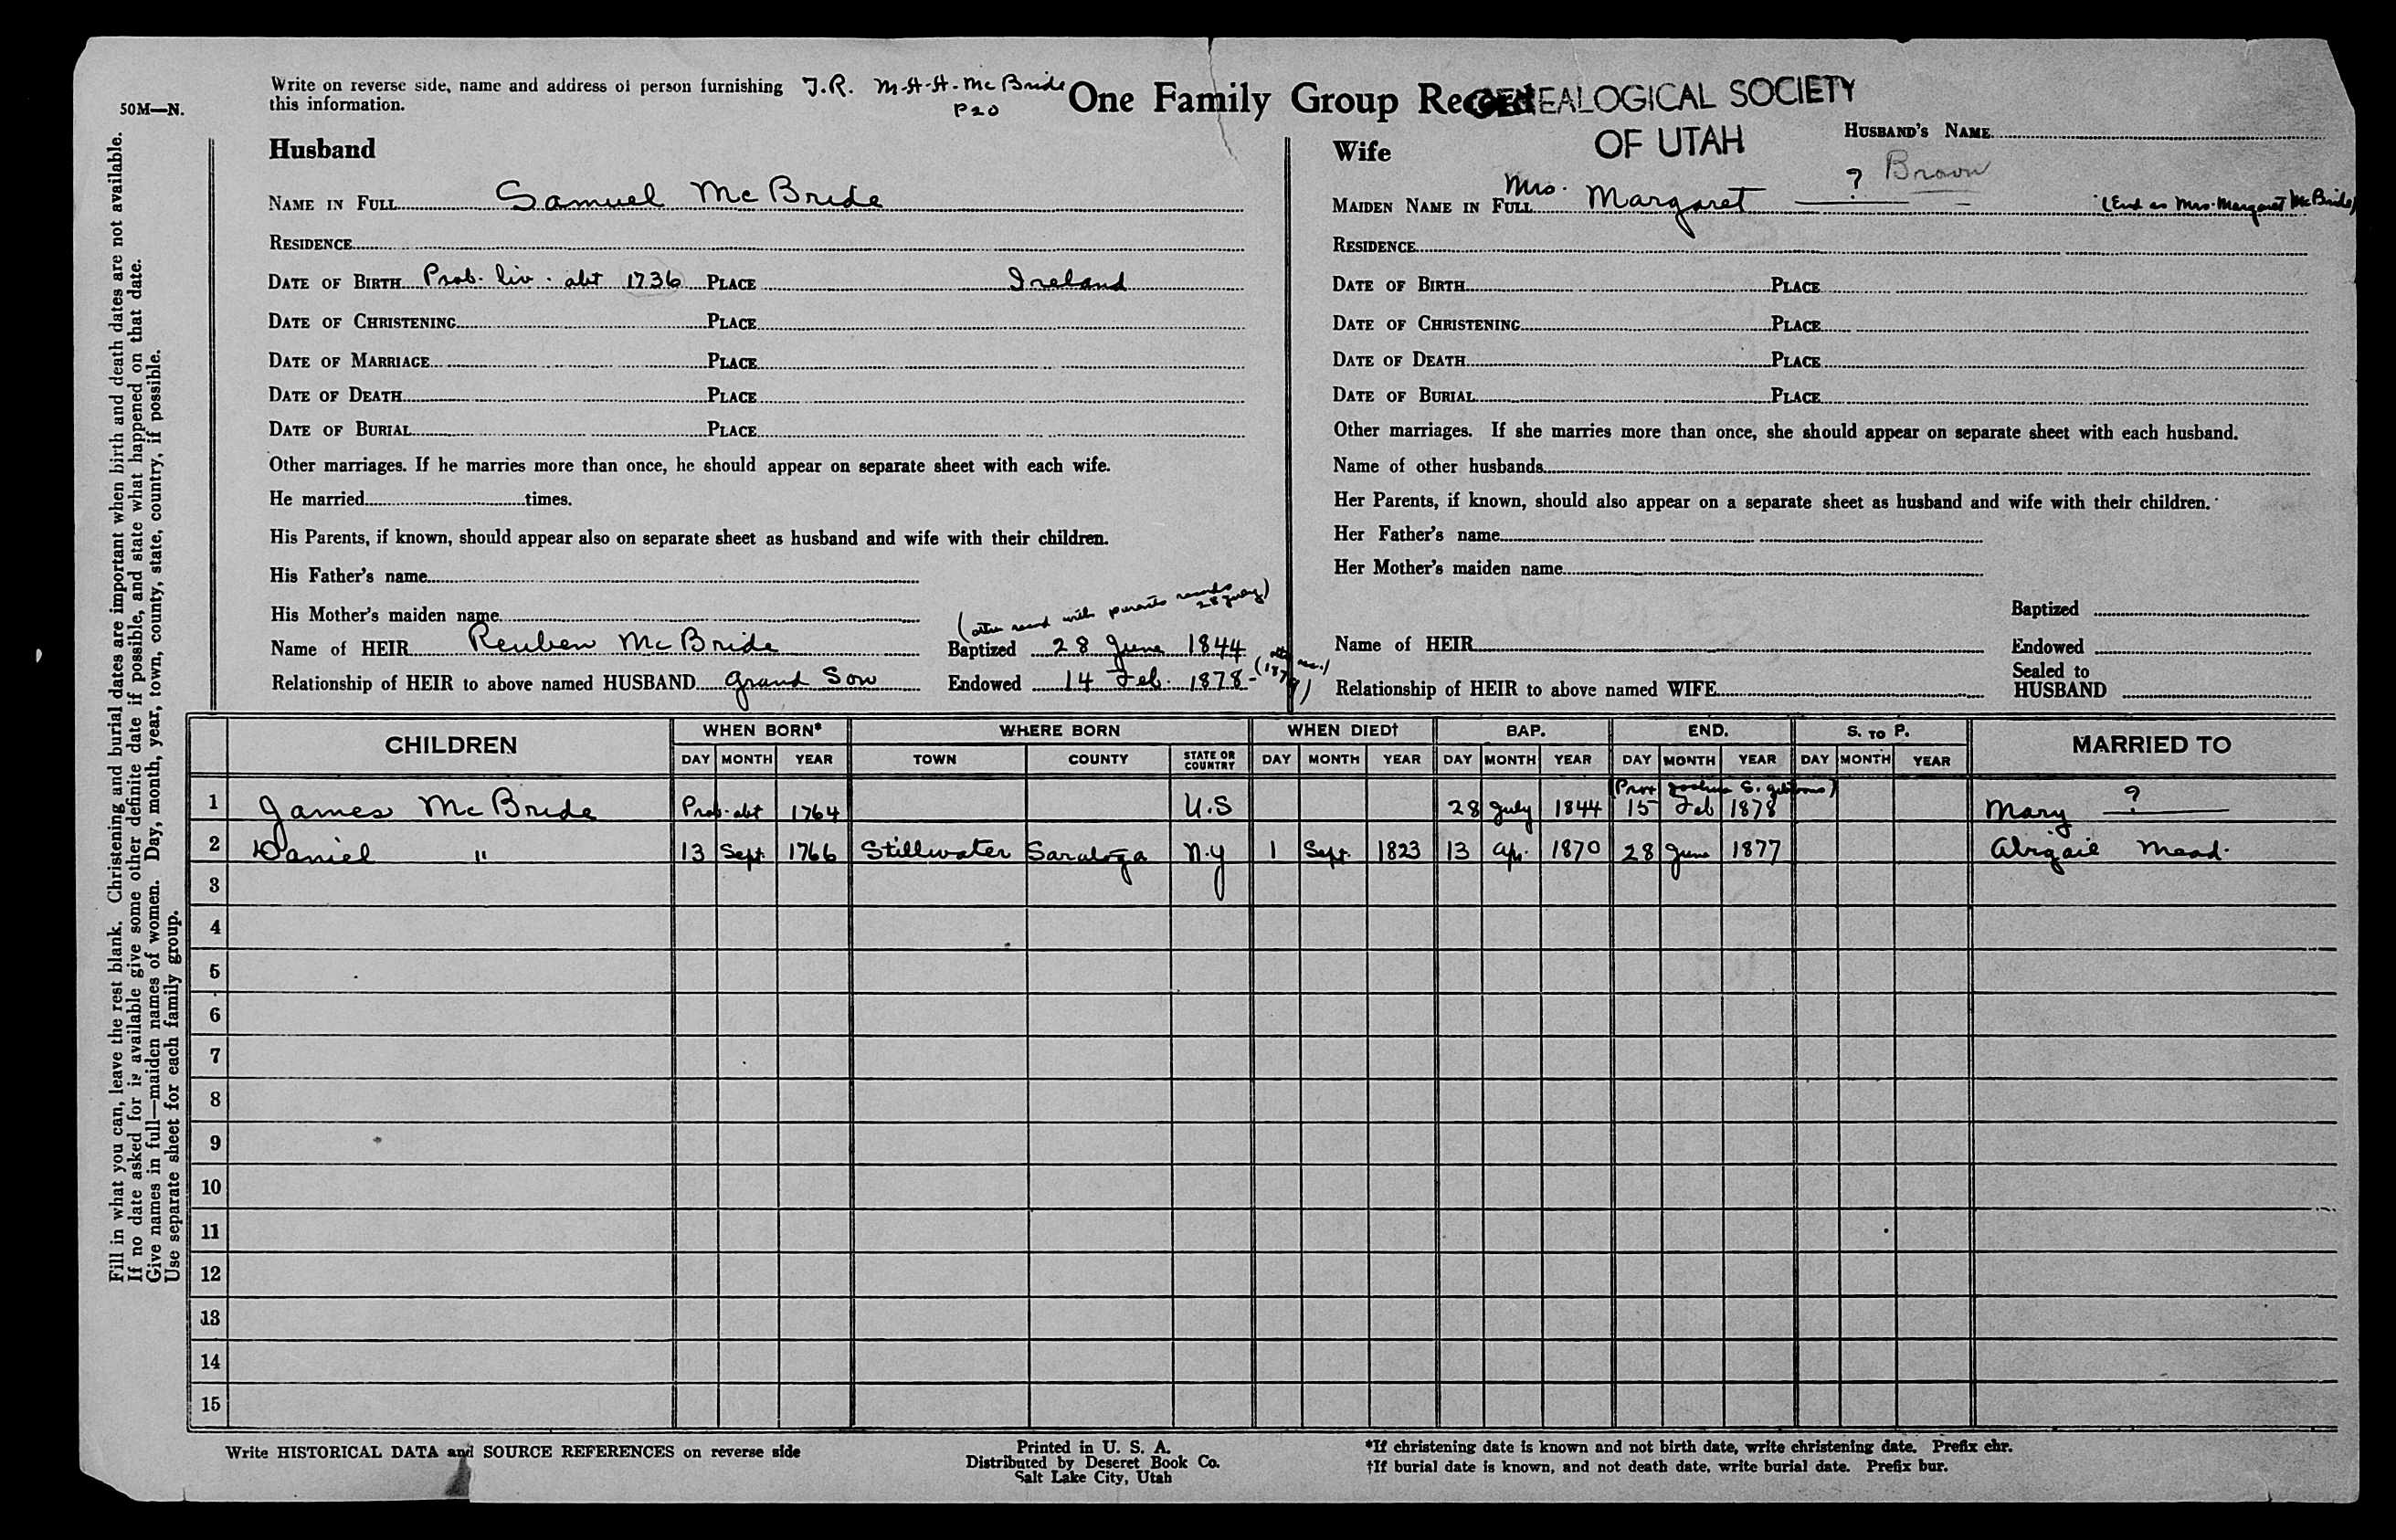 50M—N.
Write on reverse side, name and address of person furnishing T.R. M-A-H-McBride
this information. P20
One Family Group Record
GENEALOGICAL SOCIETY
OF UTAH
Husband
NAME IN FULL Samuel McBride
RESIDENCE
DATE OF BIRTH Prob. liv. abt 1736 PLACE Ireland
DATE OF CHRISTENING PLACE
DATE OF MARRIAGE PLACE
DATE OF DEATH PLACE
DATE OF BURIAL PLACE
Other marriages. If he marries more than once, he should appear on separate sheet with each wife.
He married times.
His Parents, if known, should appear also on separate sheet as husband and wife with their children.
His Father's name
His Mother's maiden name
(other record with parents records 28 July)
Name of HEIR Reuben McBride Baptized 28 June 1844
Relationship of HEIR to above named HUSBAND Grand Son Endowed 14 Feb. 1878-
Wife
HUSBAND'S NAME
? Brown
MAIDEN NAME IN FULL Mrs. Margaret (End as Mrs. Margaret McBride)
RESIDENCE
DATE OF BIRTH PLACE
DATE OF CHRISTENING PLACE
DATE OF DEATH PLACE
DATE OF BURIAL PLACE
Other marriages. If she marries more than once, she should appear on separate sheet with each husband.
Name of other husbands
Her Parents, if known, should also appear on a separate sheet as husband and wife with their children.
Her Father's name
Her Mother's maiden name
Baptized
Name of HEIR Endowed
Relationship of HEIR to above named WIFE Sealed to HUSBAND
CHILDREN WHEN BORN* WHERE BORN WHEN DIED† BAP. END. S. TO P. MARRIED TO
DAY MONTH YEAR TOWN COUNTY STATE OR COUNTRY DAY MONTH YEAR DAY MONTH YEAR DAY MONTH YEAR DAY MONTH YEAR
(Prox Joshua S. Gibbons)
1 James McBride Prob. abt 1764 U.S 28 July 1844 15 Feb 1878 Mary ?
2 Daniel " 13 Sept. 1766 Stillwater Saratoga N.Y 1 Sept. 1823 13 Ap. 1870 28 June 1877 Abigail Mead.
3
4
5
6
7
8
9
10
11
12
13
14
15
Write HISTORICAL DATA and SOURCE REFERENCES on reverse side
Printed in U. S. A.
Distributed by Deseret Book Co.
Salt Lake City, Utah
*If christening date is known and not birth date, write christening date. Prefix chr.
†If burial date is known, and not death date, write burial date. Prefix bur.
Fill in what you can, leave the rest blank. Christening and burial dates are important when birth and death dates are not available.
If no date asked for is available give some other definite date if possible, and state what happened on that date.
Give names in full—maiden names of women. Day, month, year, town, county, state, country, if possible.
Use separate sheet for each family group.